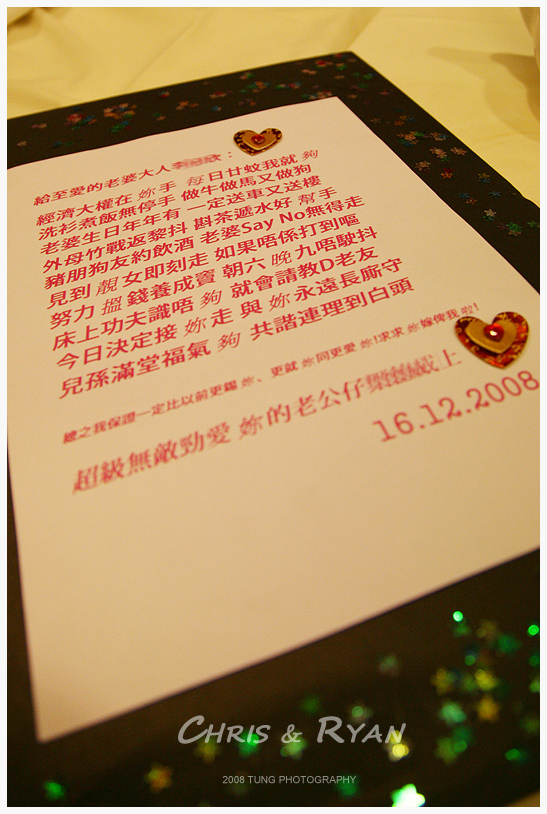 給至愛的老婆大人 :
經濟大權在 妳 手 每日廿蚊我就 夠
洗衫煮飯無停手 做牛做馬又做狗
老婆生日年年有 一定送車又送樓
外母竹戰返黎抖 斟茶遞水好 幫 手
豬朋狗友約飲酒 老婆Say No無得走
見到 靚 女即刻走 如果唔係打到嘔
努力 搵 錢養成竇 朝六 晚 九唔駛抖
床上功夫識唔 夠 就會請教D老友
今日決定接 妳 走 與 妳 永遠長廝守
兒孫滿堂福氣 夠 共諧連理到白頭
總之我保證一定比以前更錫 妳 、更就 妳 同更愛 妳 !求求 妳 嫁俾我 啦!
超級無敵勁愛 妳 的老公仔 上
16.12.2008
CHRIS & RYAN
2008 TUNG PHOTOGRAPHY